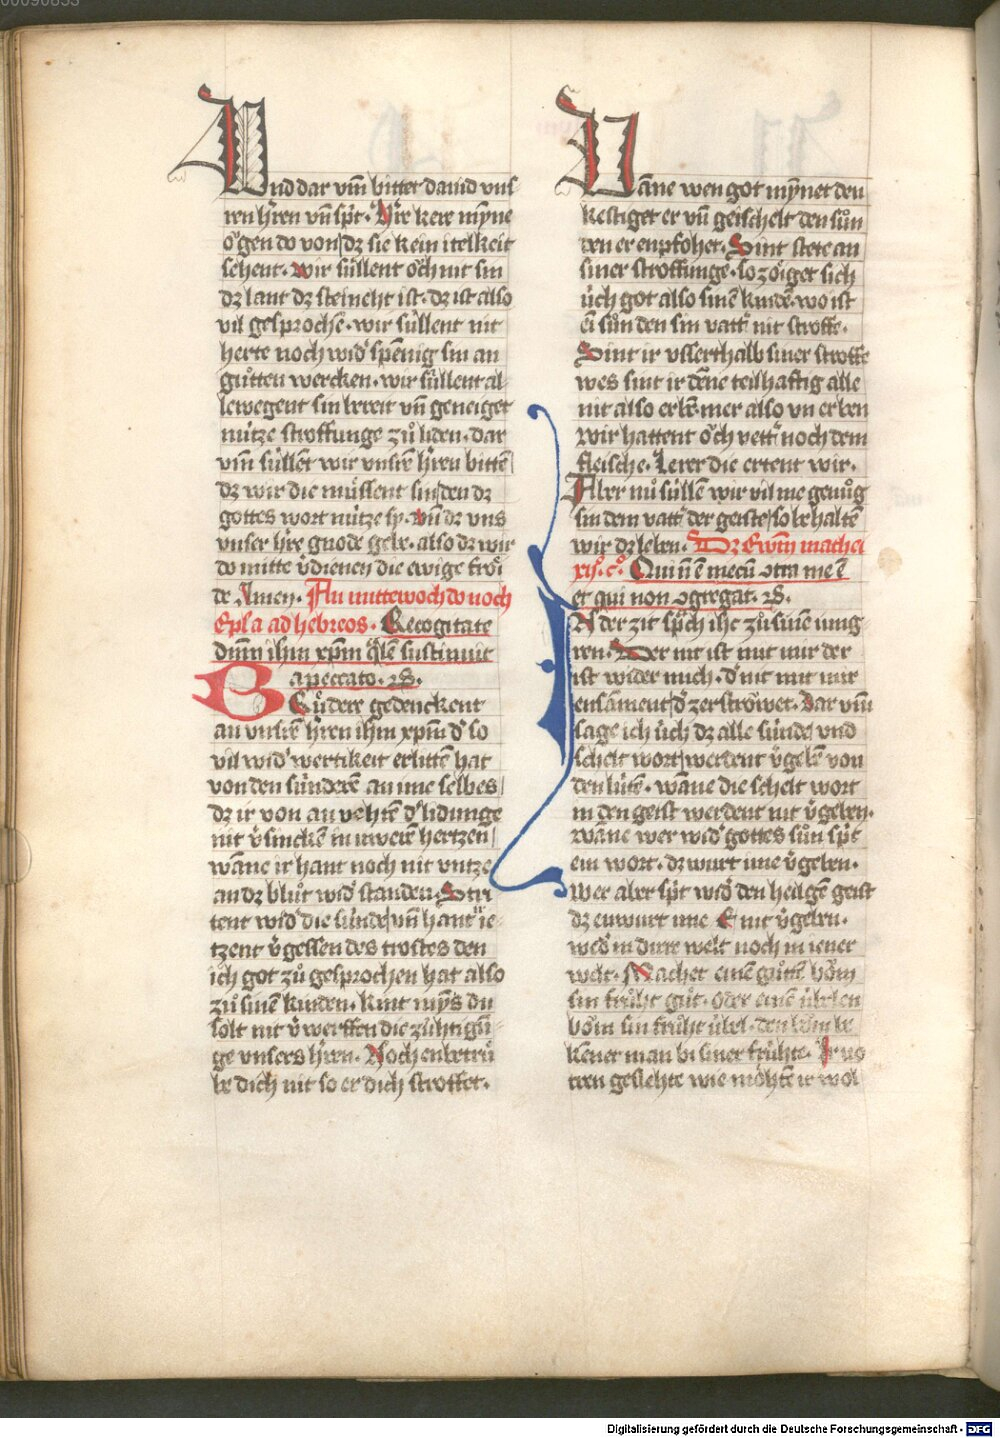 Und dar vm̄ bitter dauid vns
ren h̄ren vn̄ spͥt. Hre kere myne
oͤgen do von dz sie kein itelkeit
sehent. wir süllent oͮch nit sin
dz lant dz steineht ist. dz ist also
vil gesprochē. wir süllent nit
herte noch wid spennig sin an
guͦtten wercken. wir süllent al-
lewegent sin bereit vn̄ geneiget
nütze stroffunge zuͦ liden. dar
vm̄ süllēt wir vnsrē h̄ren bittē
dz wir die müssent sin den dz
gottes wort nütze sy. vn̄ dz vns
vnser h̄re gnode gebe. also dz wir
do mitte v̄dienen die ewige froͤi
de Amen. An mittewoch do noch
Epl'a ad hebreos. Recogitate
dn̄m ihm xp̄m q̄lē sustinuit
a peccato. zc.
Bruͦdere gedenckent
an vnsrē h̄ren ihm xp̄m d' so
vil wid'wertikeit erlittē hat
von den sünderē an ime selbes
dz ir von an vehtē d' lidunge
nit v̄sinckē in uwerē hertzen
wāne ir hant noch nit vntze
an dz bluͦt wid'standen. Stri
tent wid' die sünde vn̄ hant ie-
tzent v̄gessen des trostes den
ich got zuͦ gesprochen hat also
zuͦ sinē kinden. kint mȳs du
solt nit v̄werffen die zühtigū
ge vnsers h̄ren. Noch enbetruͤ
be dich nit so er dich stroffet.
Wāne wen got mynet den
kestiget er vn̄ geischelt den suͦn
den er enpfohet. Sint stete an
siner stroffunge. so zoͤiget sich
üch got also sinē kindē. wo ist
ei suͦn den sin vatt' nit stroffe.
Sint ir vsserthalb siner stroffe
wes sint ir dēne teilhaftig alle
nit also erbē. mer also vn erben
Wir hattent oͮch vett' noch dem
fleische. Lerer die ertent wir.
Aber nuͦ süllē wir vil me genuͦg
sin dem vatt' der geiste so behaltē
wir dz leben. Dz Ewn̄ mathei
xij. c. Qui nō ē mecū contra me ē
et qui non congregat. zc.
IN der zit spͣch ihc zuͦ sinē iung-
ren. Der nit ist mit mir der
ist wider mich. d' nit mit mir
ensament d' zerstroͤwet. Dar vm̄
sage ich üch dz alle sünde vnd
schelt wort werdent v̄gebē von
den lütē. wāne die schelt wort
in den geist werdent nit v̄geben.
wāne wer wid' gottes suͦn spͥt
ein wort. dz wurt ime v̄geben.
Wer aber spͥt wid' den heilgē geist
dz enwurt ime nit v̄gebn.
wed' in dirre welt noch in iener
welt. Machet einē guͦttē boͮm
sin fruͤht guͦt. oder einē übelen
boͮm sin fruͤht übel. den boͮm be
kener man bi siner fruͤhte. Ir no
tren geslehte wie moͤhtē ir wol
Digitalisierung gefördert durch die Deutsche Forschungsgemeinschaft - DFG